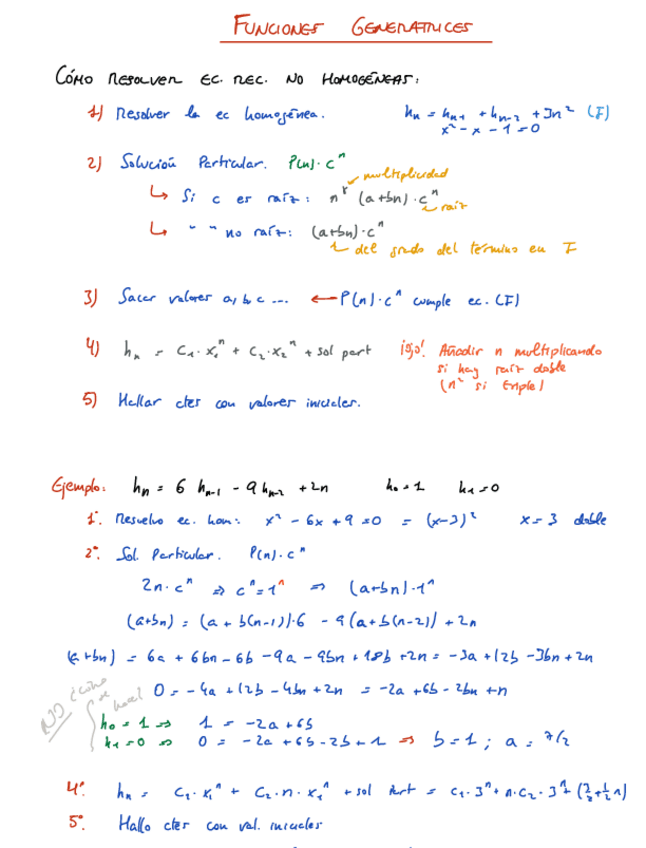 FUNCIONES GENERATRICES
CÓMO RESOLVER EC. REC. NO HOMOGÉNEAS:
1) Resolver la ec homogénea. hₙ = hₙ₊₁ + hₙ₋₂ + 3n² (F)
x² - x - 1 = 0
2) Solución Particular. P(n)·cⁿ
multiplicidad
↳ Si c es raíz: nᵏ (a+bn)·cⁿ
raíz
↳ " " no raíz: (a+bn)·cⁿ
del grado del término en F
3) Sacar valores a, b, c ... ← P(n)·cⁿ cumple ec. (F)
4) hₙ = C₁·x₁ⁿ + C₂·x₂ⁿ + sol part ¡ojo! Añadir n multiplicando
si hay raíz doble
(n² si triple)
5) Hallar ctes con valores iniciales.
Ejemplo: hₙ = 6 hₙ₋₁ - 9hₙ₋₂ + 2n h₀ = 1 h₁ = 0
1º. Resuelvo ec. hom: x² - 6x + 9 = 0 = (x-3)² x = 3 doble
2º. Sol. Particular. P(n)·cⁿ
2n·cⁿ ⇒ cⁿ = 1ⁿ ⇒ (a+bn)·1ⁿ
(a+bn) = (a + b(n-1))·6 - 9(a+b(n-2)) + 2n
(a+bn) = 6a + 6bn - 6b - 9a - 9bn + 18b + 2n = -3a + 12b - 3bn + 2n
0 = -4a + 12b - 4bn + 2n = -2a + 6b - 2bn + n
NO ¿cómo se hace?
h₀ = 1 ⇒ 1 = -2a + 6b
h₁ = 0 ⇒ 0 = -2a + 6b - 2b + 1 ⇒ b = 1 ; a = 7/2
4º. hₙ = C₁·x₁ⁿ + C₂·n·x₁ⁿ + sol Part = C₁·3ⁿ + n·C₂·3ⁿ + (3/2 + 1/2 n)
5º Hallo ctes con val. iniciales